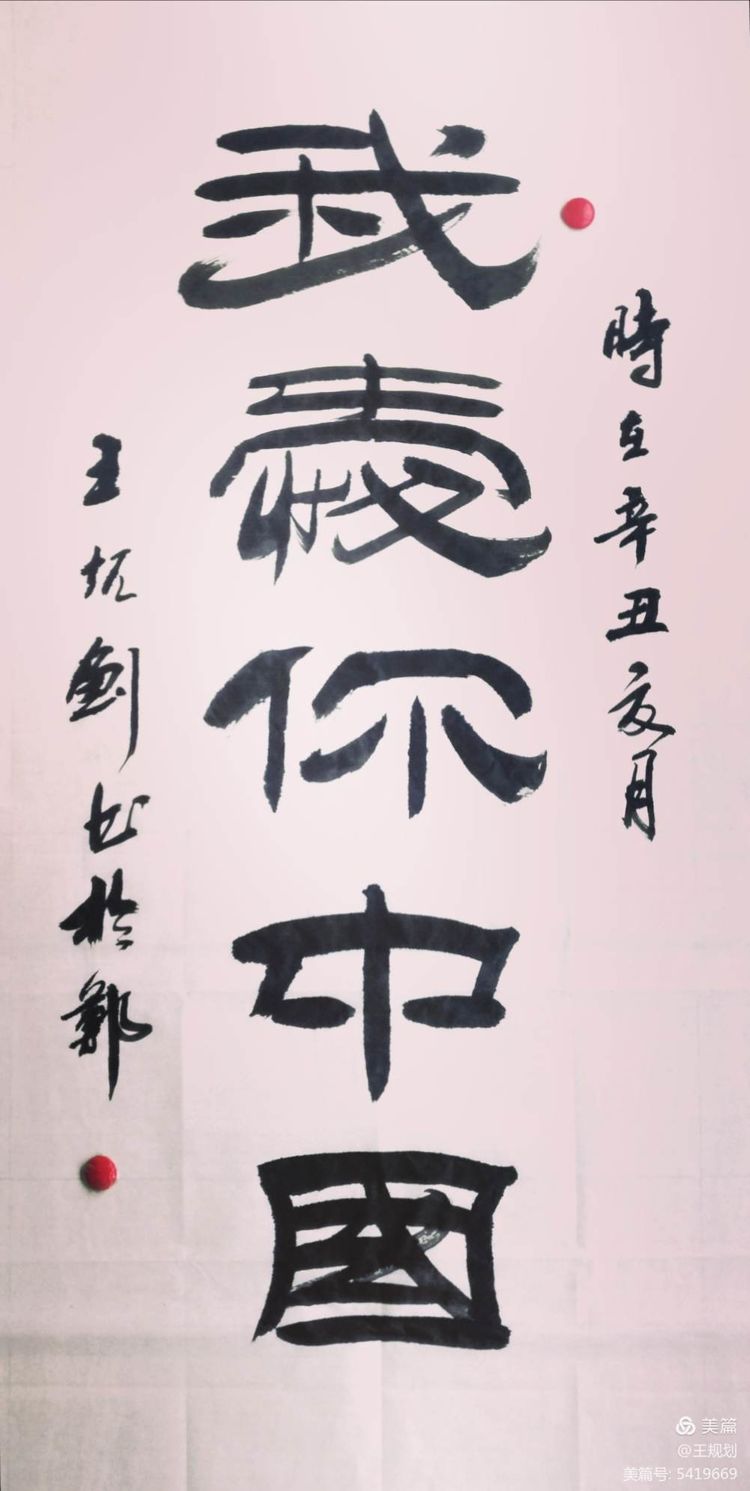 時在辛丑亥月
我爱你中国
王炬劍书於鄭
美篇
@王规划
美篇号: 5419669